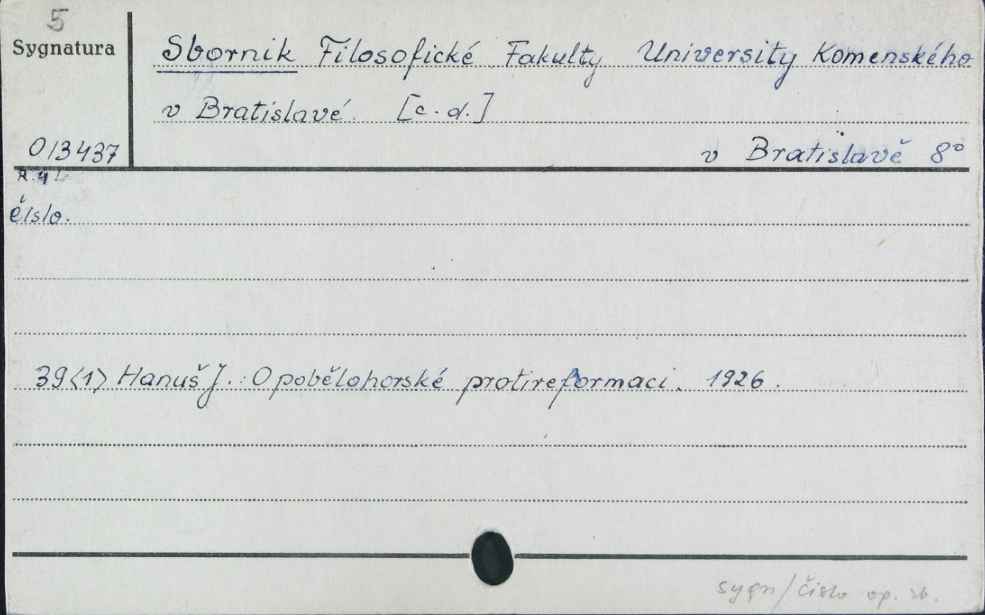 5
Sygnatura
Sbornik Filosofické Fakulty University Komenského
v Bratislavé. [c.d.]
013437
v Bratislavě 8°
R. 4
číslo.
39(1) Hanuš J. : O pobělohorské protireformaci. 1926.
sygn/číslo op. zb.